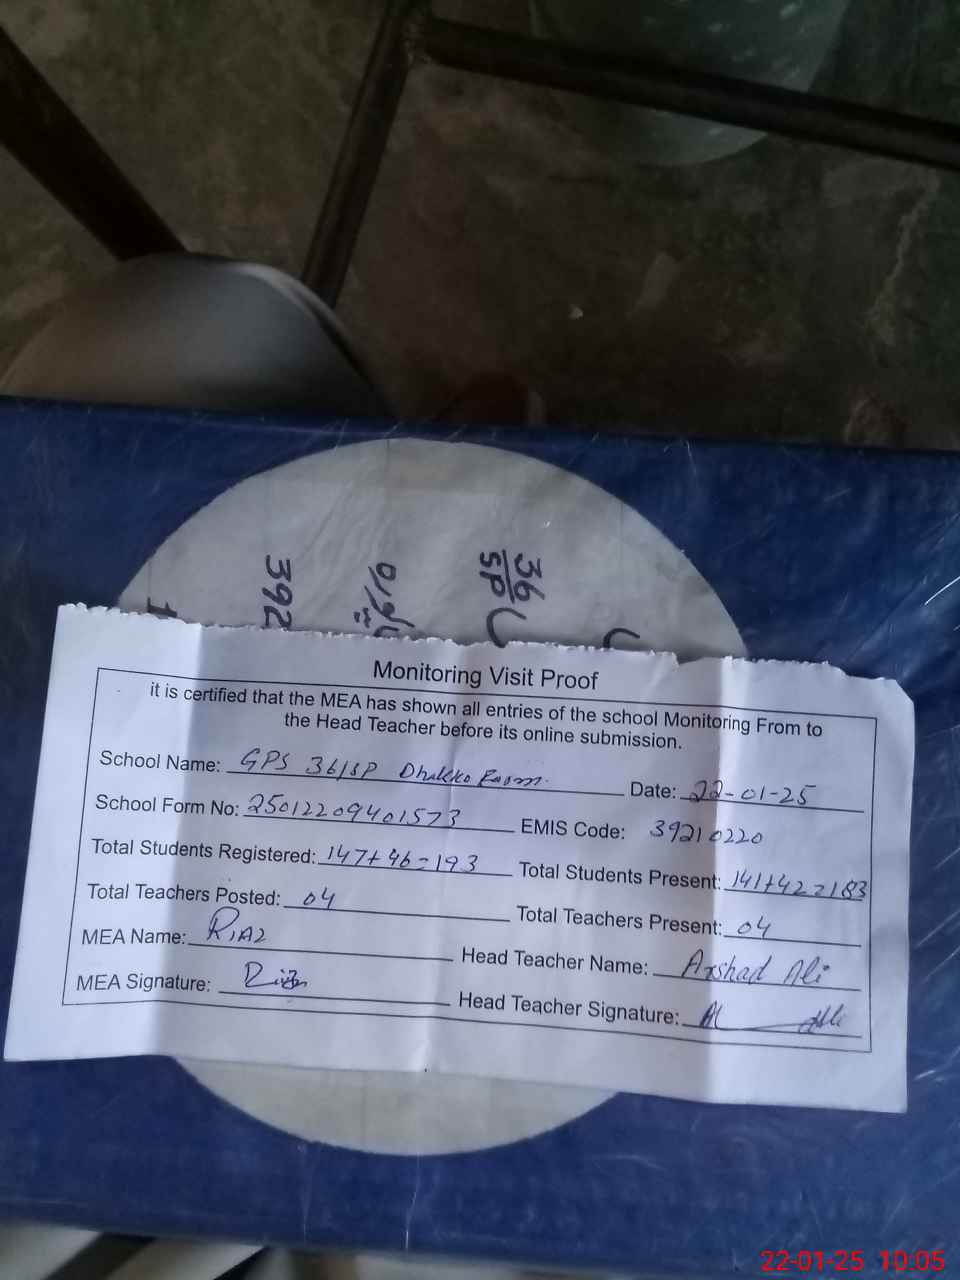 36
SP
019/
392
Monitoring Visit Proof
it is certified that the MEA has shown all entries of the school Monitoring From to
the Head Teacher before its online submission.
School Name: GPS 36/SP Dhakko Date: 22-01-25
School Form No: 25012209401573 EMIS Code: 39210220
Total Students Registered: 147+46=193 Total Students Present: 141+42=183
Total Teachers Posted: 04 Total Teachers Present: 04
MEA Name: RIAZ Head Teacher Name: Arshad Ali
MEA Signature: Head Teacher Signature:
22-01-25 10:05